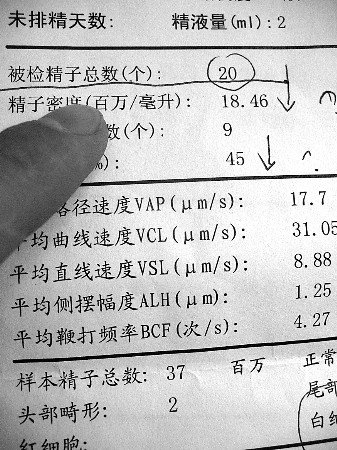 未排精天数: 精液量(ml):2
被检精子总数(个): 20
精子密度(百万/毫升): 18.46
数(个): 9
): 45
径速度VAP(μm/s): 17.7
平均曲线速度VCL(μm/s): 31.05
平均直线速度VSL(μm/s): 8.88
平均侧摆幅度ALH(μm): 1.25
平均鞭打频率BCF(次/s): 4.27
样本精子总数: 37 百万 正常
头部畸形: 2 尾部
白细
红细胞: